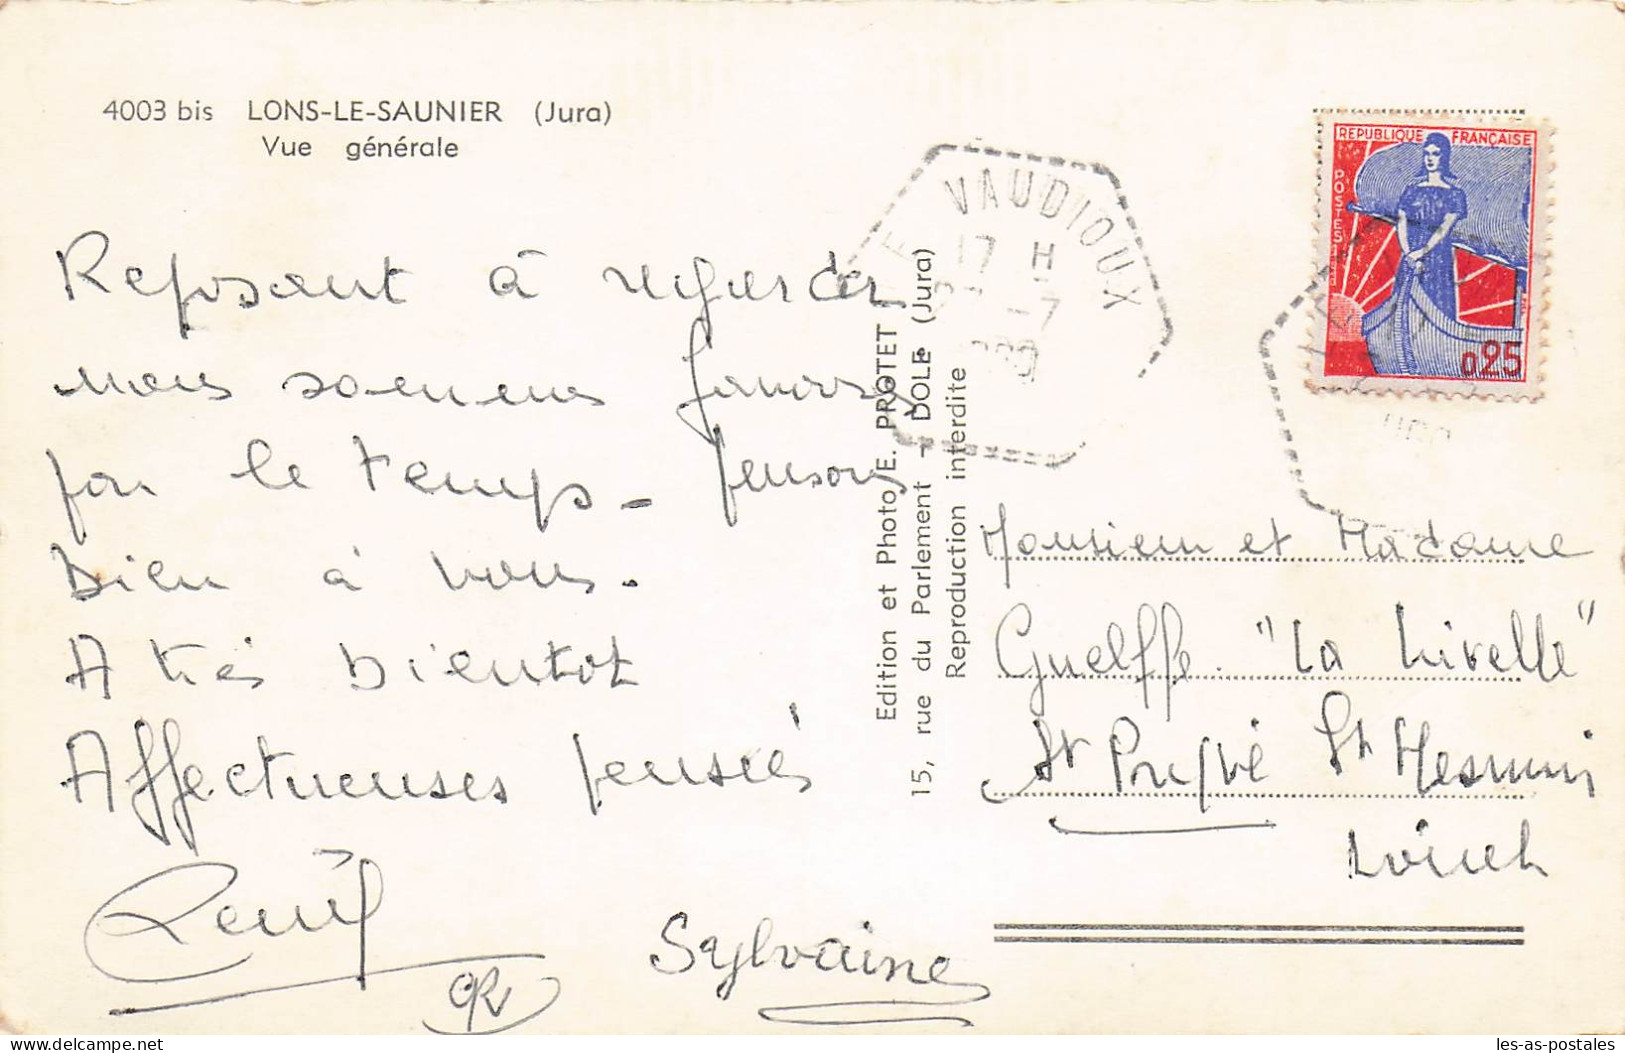 4003 bis LONS-LE-SAUNIER (Jura)
Vue générale
Reposant à regarder
nous sommes favorisés
par le temps_ Pensons
bien à vous.
A très bientôt
Affectueuses pensées
Sylvaine
Edition et Photo E. PROTET
15, rue du Parlement - DOLE (Jura)
Reproduction interdite
LE VAUDIOUX
17 H
-7
REPUBLIQUE FRANÇAISE
POSTES
0,25
Monsieur et Madame
Guelffe "La Nivelle"
St Pryvé St Mesmin
Loiret
les-as-postales